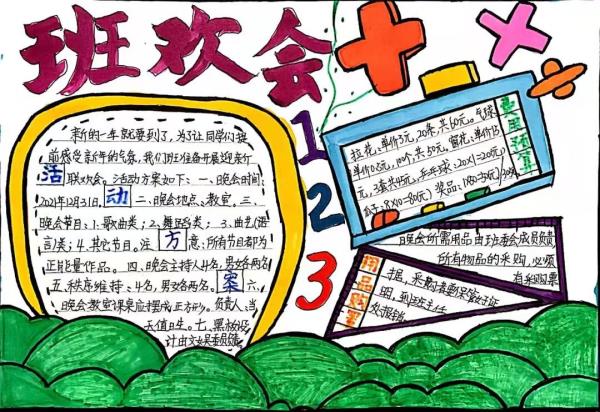 班欢会
新的一年就要到了,为了让同学们提
前感受新年的气氛,我们班准备开展迎新
活 联欢会。活动方案如下:一、晚会时间
2021年12月31日。动 二、晚会地点、教室。三、
晚会节目:1.歌曲类;2.舞蹈类;3.曲艺(语
言)类;4.其它节目。注 方 意:所有节目都为
正能量作品。四、晚会主持人4名,男女各两名
五、秩序维持:4名,男女各两名。案 六、
晚会教室课桌应摆成正方形。负责人:当
天值日生。七、黑板设
计由文娱委员负责
1
2
3
费用预算
拉花,单价3元,20条,共60元。气球
单价0.5元,100个,共50元,窗花,单价15
元,3套共45元,乒乓球:20×1=20元,
盒子:8×10=80元)奖品:
物品购置
晚会所需用品由班委会成员负责
所有物品的采购,必须
有采购票
据,采购者要保管好证
明,到班主任
处报销。